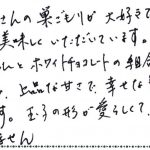 さんの巣ごもりが大好きで
美味しくいただいています。
んとホワイトチョコレートの組合
、上品な甘さで、幸せな
す。玉子の形が愛らしくて、
ません